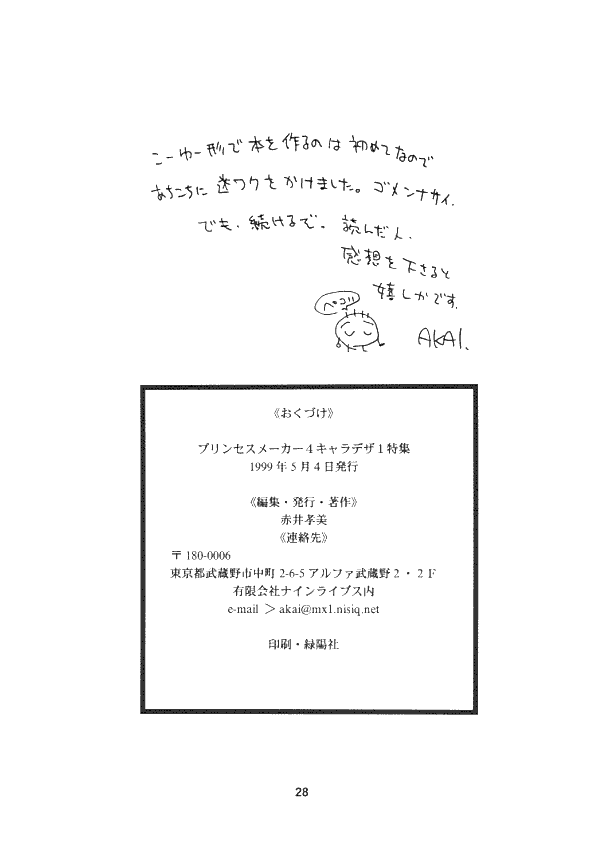 こーゆー形で本を作るのは初めてなので
あちこちに迷ワクをかけました。ゴメンナサイ.
でも、続けるで。読んだ人、
感想を下さると
嬉しかです.
ペコリ
AKAI.
《おくづけ》
プリンセスメーカー４キャラデザ１特集
1999 年 5 月 4 日発行
《編集・発行・著作》
赤井孝美
《連絡先》
〒 180-0006
東京都武蔵野市中町 2-6-5 アルファ武蔵野 2 ・ 2 F
有限会社ナインライブス内
e-mail ＞ akai@mx1.nisiq.net
印刷・緑陽社
28